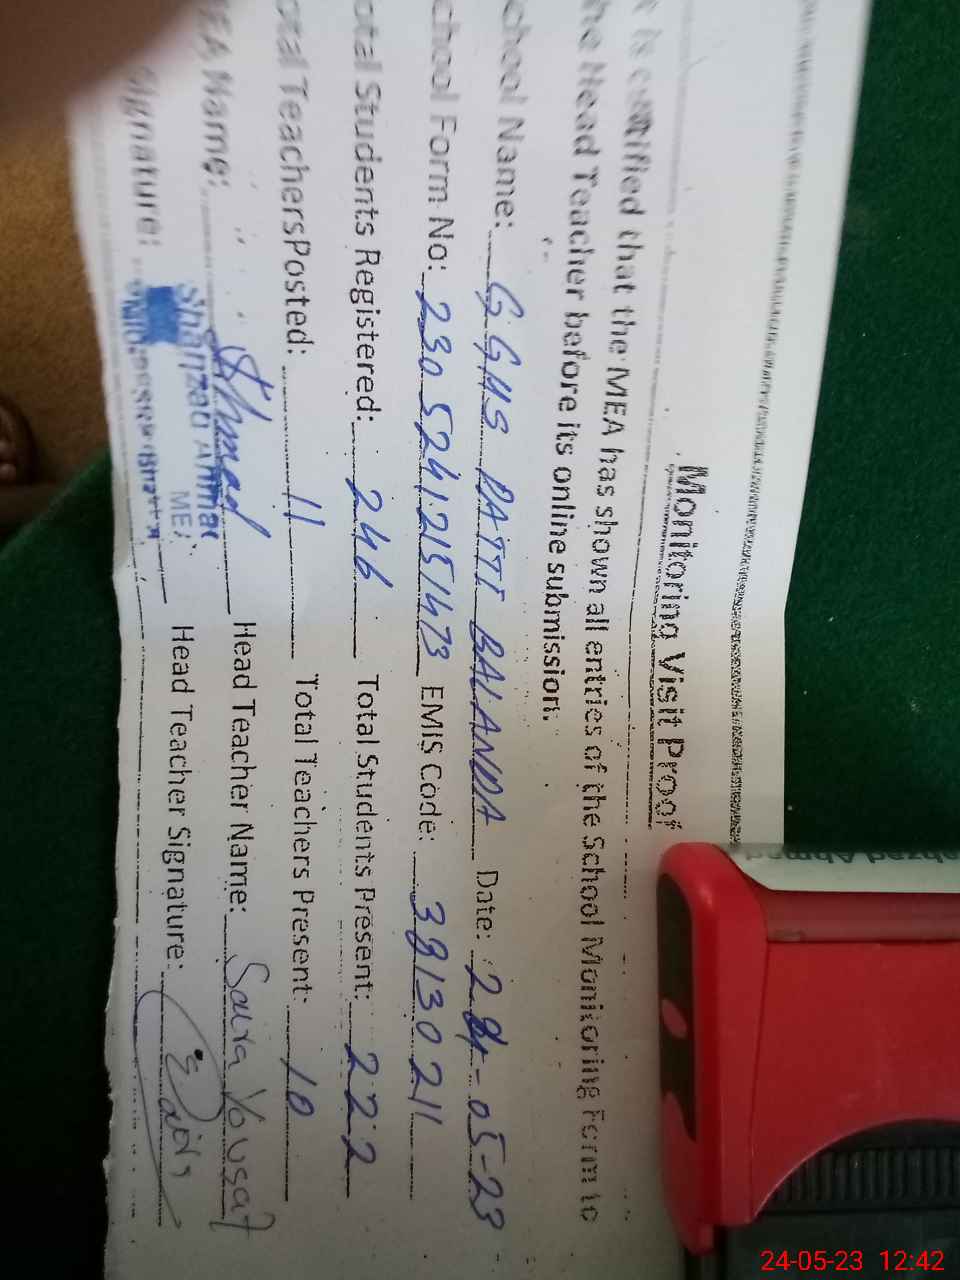 Monitoring Visit Proof
t is certified that the MEA has shown all entries of the School Monitoring Form to
he Head Teacher before its online submission.
chool Name: GGHS PATTI BALANDA Date: 24-05-23
chool Form No: 23052412151473 EMIS Code: 38130211
otal Students Registered: 246 Total Students Present: 222
otal TeachersPosted: 11 Total Teachers Present: 10
EA Name: Ahmad Head Teacher Name: Saira Yousaf
Signature: Head Teacher Signature:
Shahzad Ahmad
MEA
hzad Ahmad
24-05-23 12:42